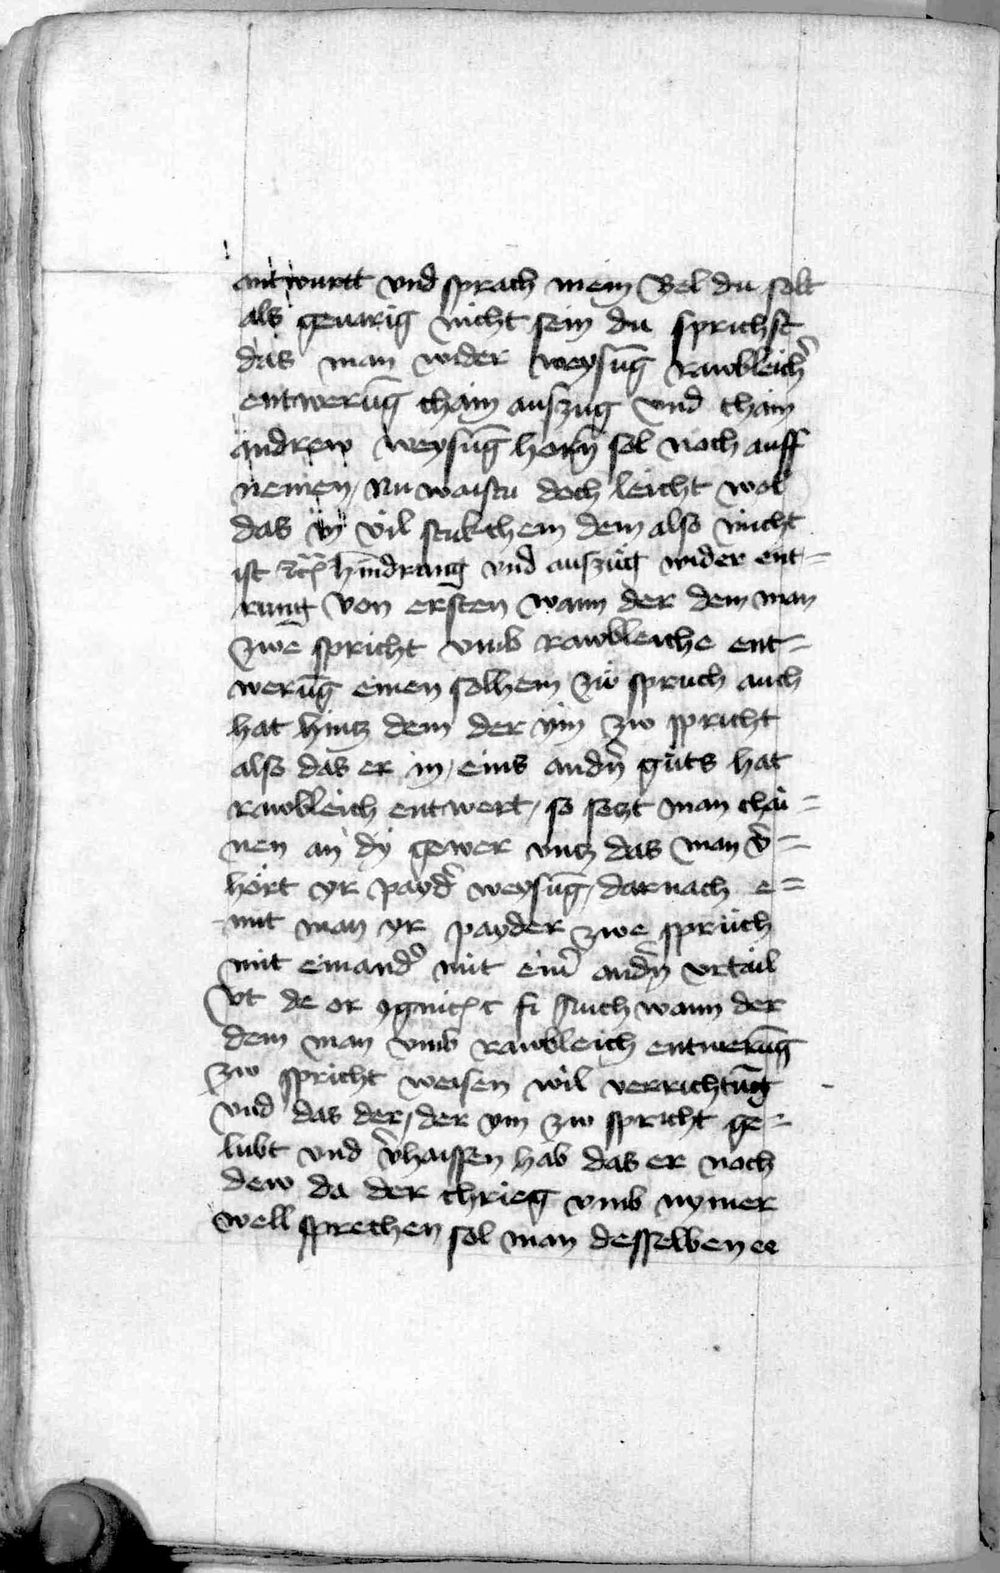 antwurtt vnd sprach mein Gel du solt
als geuarig nicht sein du sprichst
das man wider weysūg rawbleich̾
entwerūg chain auszug vnd chain
andrew weysūg horn̄ sol noch auff
nemen / Nu waistu doch leicht wol
das in vil stukchem dem also nicht
ist hindrung vnd auszug wider ent=
rung Von ersten wann der dem man
zwe spricht vmb rawbleiche ent=
werūg einen solhem zw spruch auch
hat hintz dem der ym zw spricht
also das er in / eins andn̄ guts hat
rawbleich entwert / so setzt man chai=
nen an dy gewer vntz das man v̾=
hört yr payd̾ weysūg / darnach e=
mit man yr payder zwe sprüch
mit einand̾ mit ein̾ andn̄ vrtail
vt de or ꝯgnic̄ c fi Auch wann der
dem man vmb rawbleich entwerūg
zw spricht weisen wil verrichtūg
vnd das der / der ym zw spricht ge=
lubt vnd v̾haissen hab das er noch
dew da der chrieg vmb nymer
well sprechen sol man desselben ee